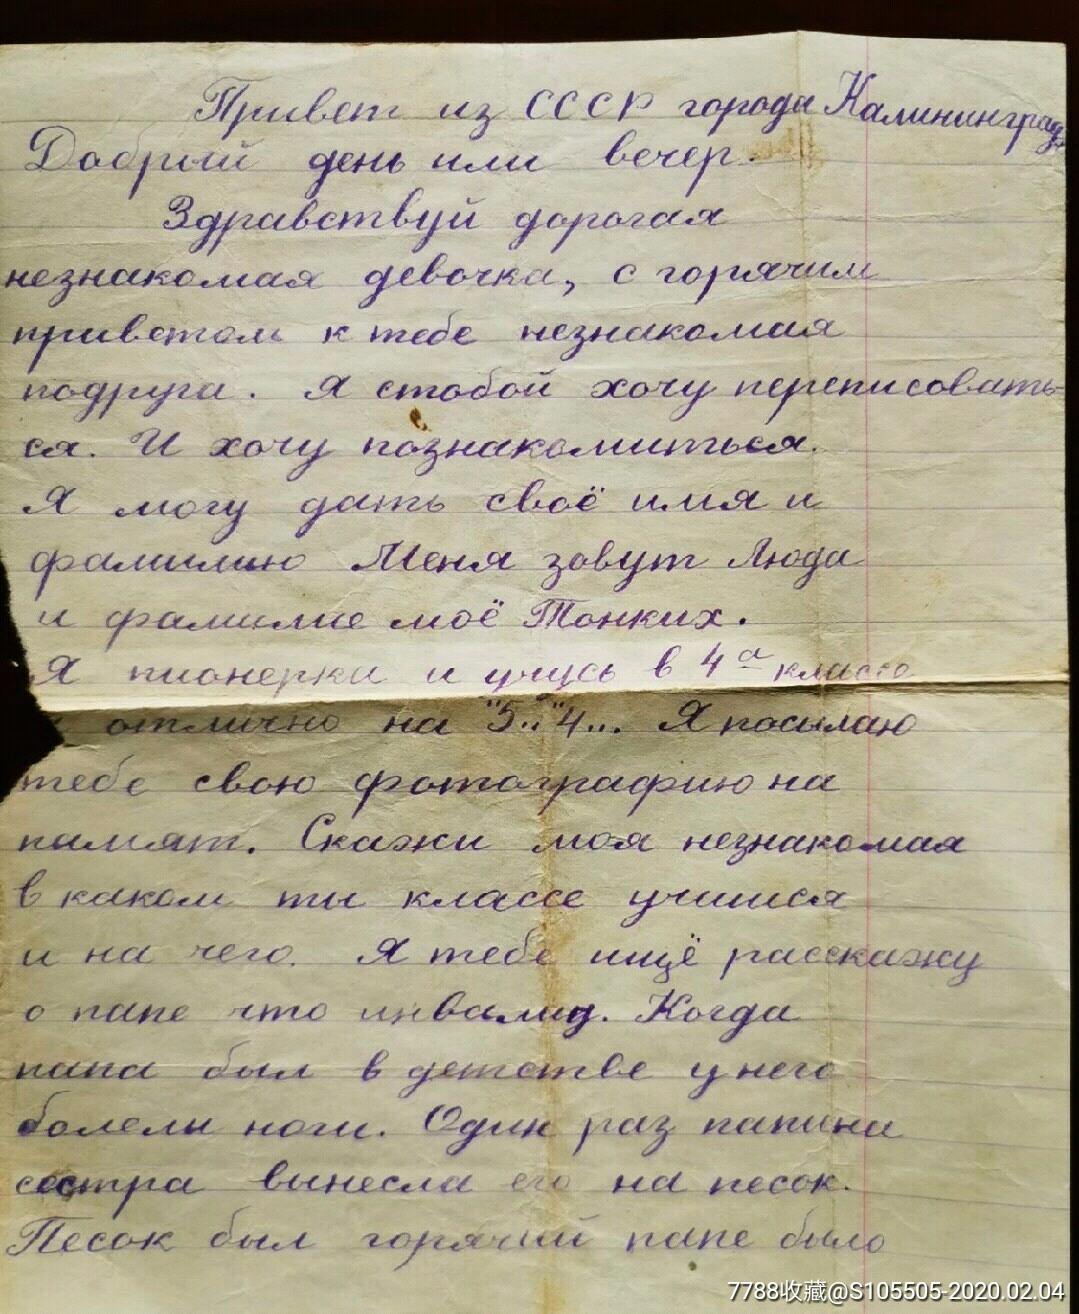 Привет из СССР города Калининград
Добрый день или вечер.
Здравствуй дорогая
незнакомая девочка, с горячим
приветом к тебе незнакомая
подруга. Я стобой хочу переписовать-
ся. И хочу познакомиться.
Я могу дать своё имя и
фамилию Меня зовут Люда
и фамилие моё Тонких.
Я пионерка и учусь в 4а классе
отлично на "5.." "4... Я посылаю
тебе свою фотографию на
памят. Скажи моя незнакомая
в каком ты классе учишся
и на чего. Я тебе ищё расскажу
о папе что инвалид. Когда
папа был в детстве у него
болели ноги. Один раз папина
сестра вынесла его на песок.
Песок был горячий папе было
7788收藏@S105505-2020.02.04